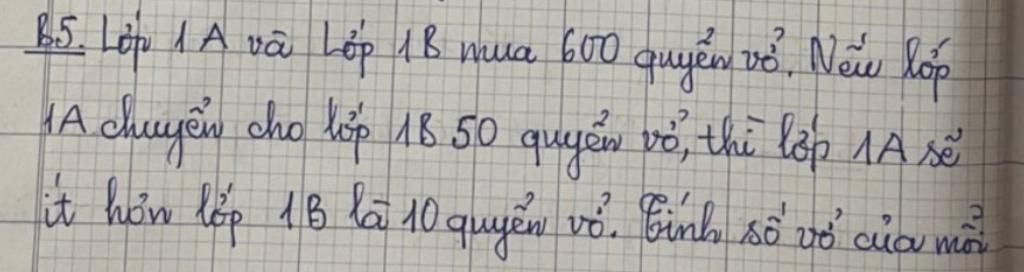 B5. Lớp 1A và Lớp 1B mua 600 quyển vở. Nếu lớp
1A chuyển cho lớp 1B 50 quyển vở, thì lớp 1A sẽ
ít hơn lớp 1B là 10 quyển vở. Tính số vở của mỗi